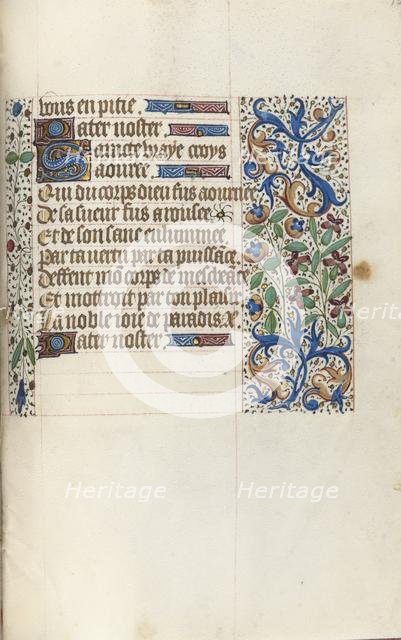 vous en pitie.
Pater noster.
Saincte vraye croys
aouree.
Qui du corps dieu fus aournee
De sa sueur fus arousee
Et de son sanc enluminee
Par ta vertu par ta puissãce
Deffent mõ corps de
Et mottroit par ton plaisir
La noble ioie de paradis
Pater noster.
Heritage Heritage
Heritage Heritage